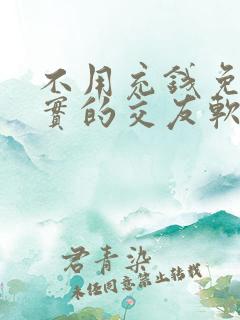 不用充錢免
實的交友軟
君青染
未经同意禁止转载